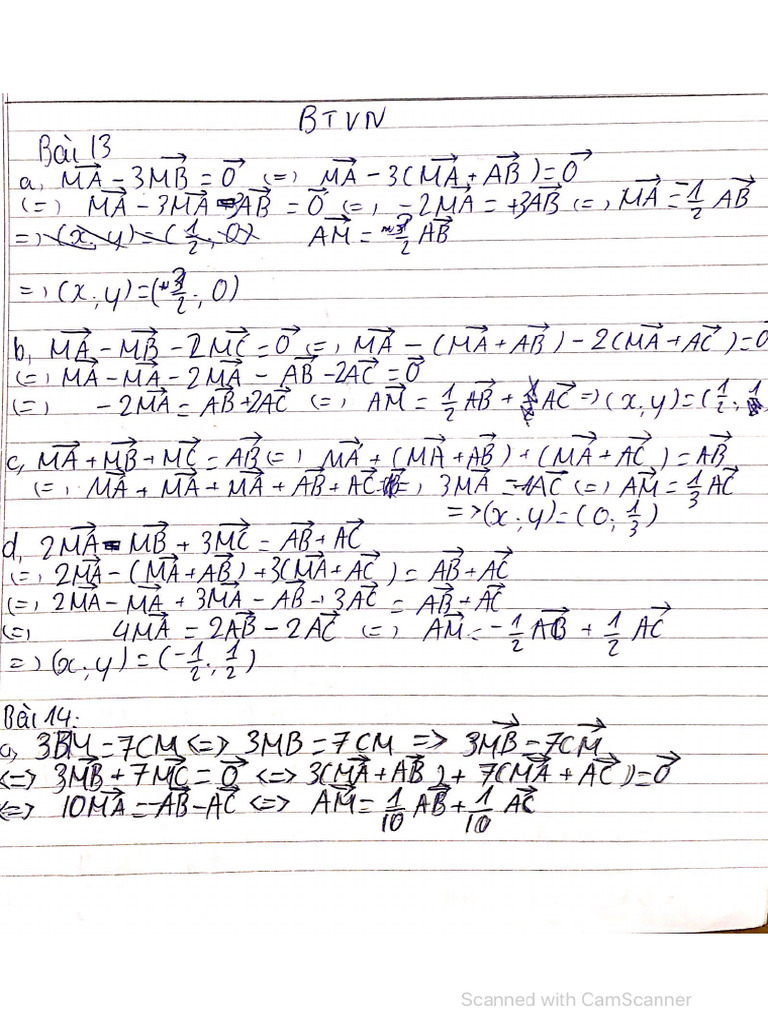 BTVN
Bài 13
a, MA→ - 3MB→ = 0→ (=) MA→ - 3(MA→ + AB→) = 0→
(=) MA→ - 3MA→ - 3AB→ = 0→ (=) -2MA→ = +3AB→ (=) MA→ = -1/2 AB→
=) (x, y) = (1/2, 0) AM→ = 3/2 AB→
=) (x; y) = (3/2; 0)
b, MA→ - MB→ - 2MC→ = 0→ (=) MA→ - (MA→ + AB→) - 2(MA→ + AC→) = 0
(=) MA→ - MA→ - 2MA→ - AB→ - 2AC→ = 0→
(=) -2MA→ = AB→ + 2AC→ (=) AM→ = 1/2 AB→ + AC→ =) (x; y) = (1/2; 1
c, MA→ + MB→ + MC→ = AB→ (=) MA→ + (MA→ + AB→) + (MA→ + AC→) = AB→
(=) MA→ + MA→ + MA→ + AB→ + AC→ = (=) 3MA→ = -AC→ (=) AM→ = 1/3 AC→
=> (x; y) = (0; 1/3)
d, 2MA→ - MB→ + 3MC→ = AB→ + AC→
(=) 2MA→ - (MA→ + AB→) + 3(MA→ + AC→) = AB→ + AC→
(=) 2MA→ - MA→ + 3MA→ - AB→ + 3AC→ = AB→ + AC→
(=) 4MA→ = 2AB→ - 2AC→ (=) AM→ = -1/2 AB→ + 1/2 AC→
=) (x; y) = (-1/2; 1/2)
Bài 14:
a, 3BM = 7CM <=> 3MB = 7CM => 3MB→ = 7CM→
<=> 3MB→ + 7MC→ = 0→ <=> 3(MA→ + AB→) + 7(MA→ + AC→) = 0→
<=> 10MA→ = -AB→ - AC→ <=> AM→ = 1/10 AB→ + 1/10 AC→
Scanned with CamScanner